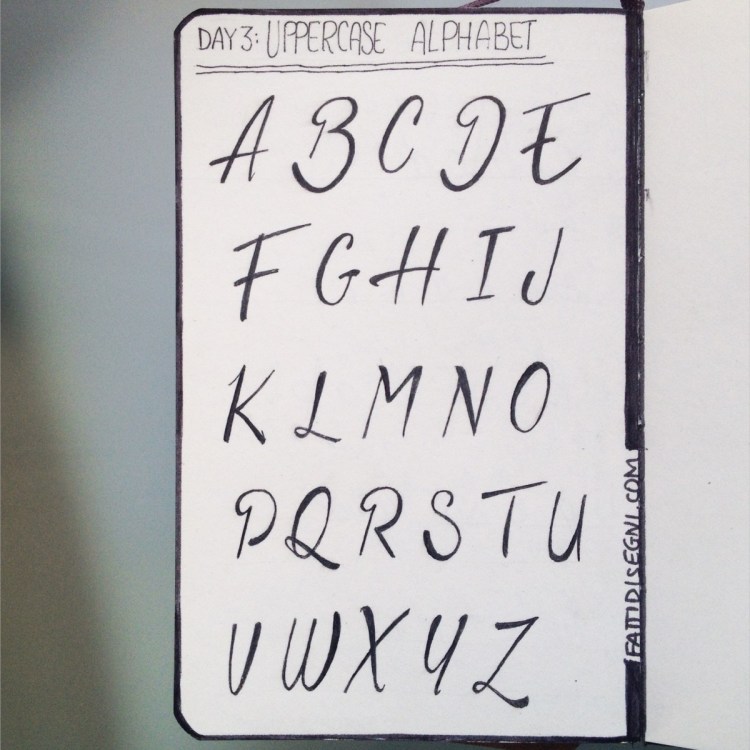 DAY 3: UPPERCASE ALPHABET
A B C D E
F G H I J
K L M N O
P Q R S T U
V W X Y Z
IFATTIDISEGNI.COM